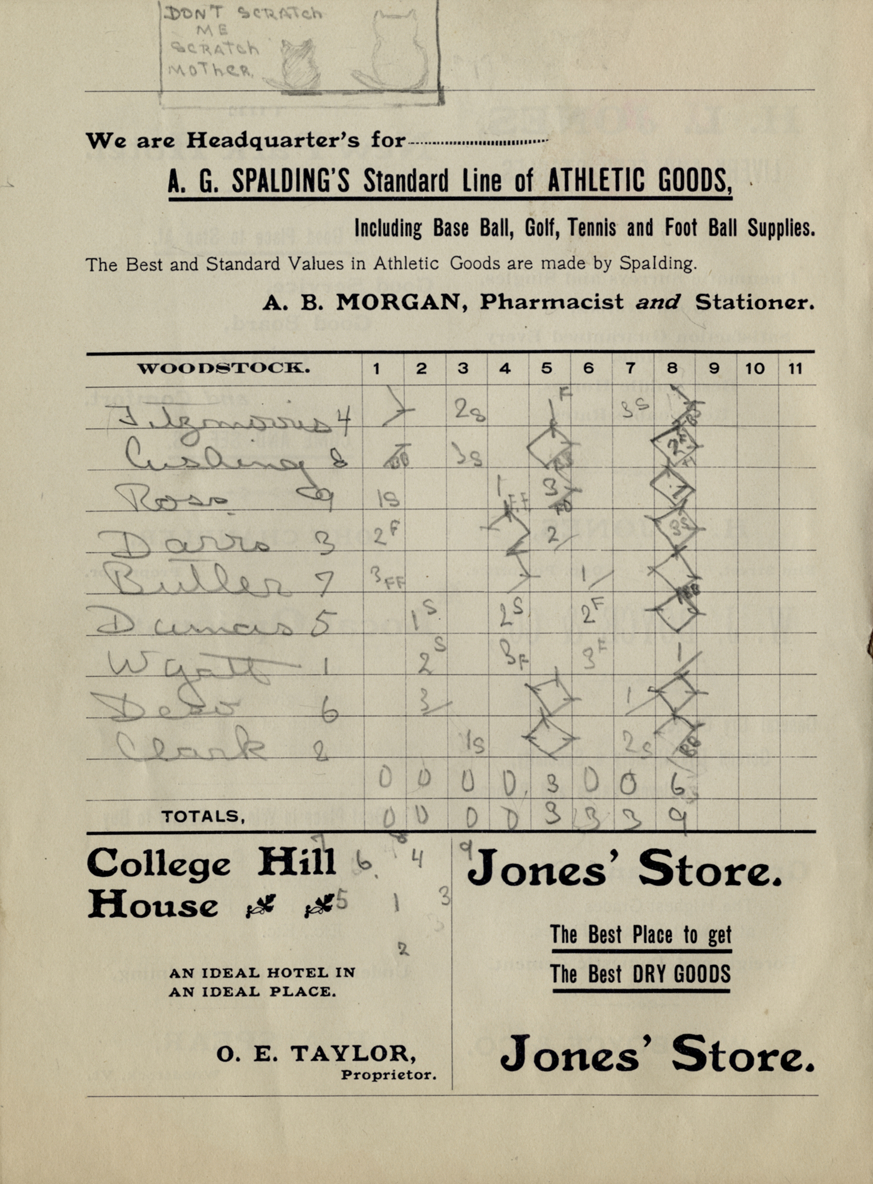 DON'T SCRATCH
ME
SCRATCH
MOTHER
We are Headquarter's for
A. G. SPALDING'S Standard Line of ATHLETIC GOODS,
Including Base Ball, Golf, Tennis and Foot Ball Supplies.
The Best and Standard Values in Athletic Goods are made by Spalding.
A. B. MORGAN, Pharmacist and Stationer.
WOODSTOCK. 1 2 3 4 5 6 7 8 9 10 11
Fitzmorris 4 2S F 3S
Cushing 8 3S 2F
Ross 9 1S 1FF 3
Darrs 3 2F 2 3S
Butler 7 3FF 1
5 1S 2S 2F
Wyatt 1 2S 3F 3F 1
6 3 1
Clark 2 1S 2S
0 0 0 0 3 0 0 6
TOTALS, 0 0 0 0 3 3 3 9
7 8 9
College Hill 6 4
House 5 1 3
2
AN IDEAL HOTEL IN
AN IDEAL PLACE.
O. E. TAYLOR,
Proprietor.
Jones' Store.
The Best Place to get
The Best DRY GOODS
Jones' Store.